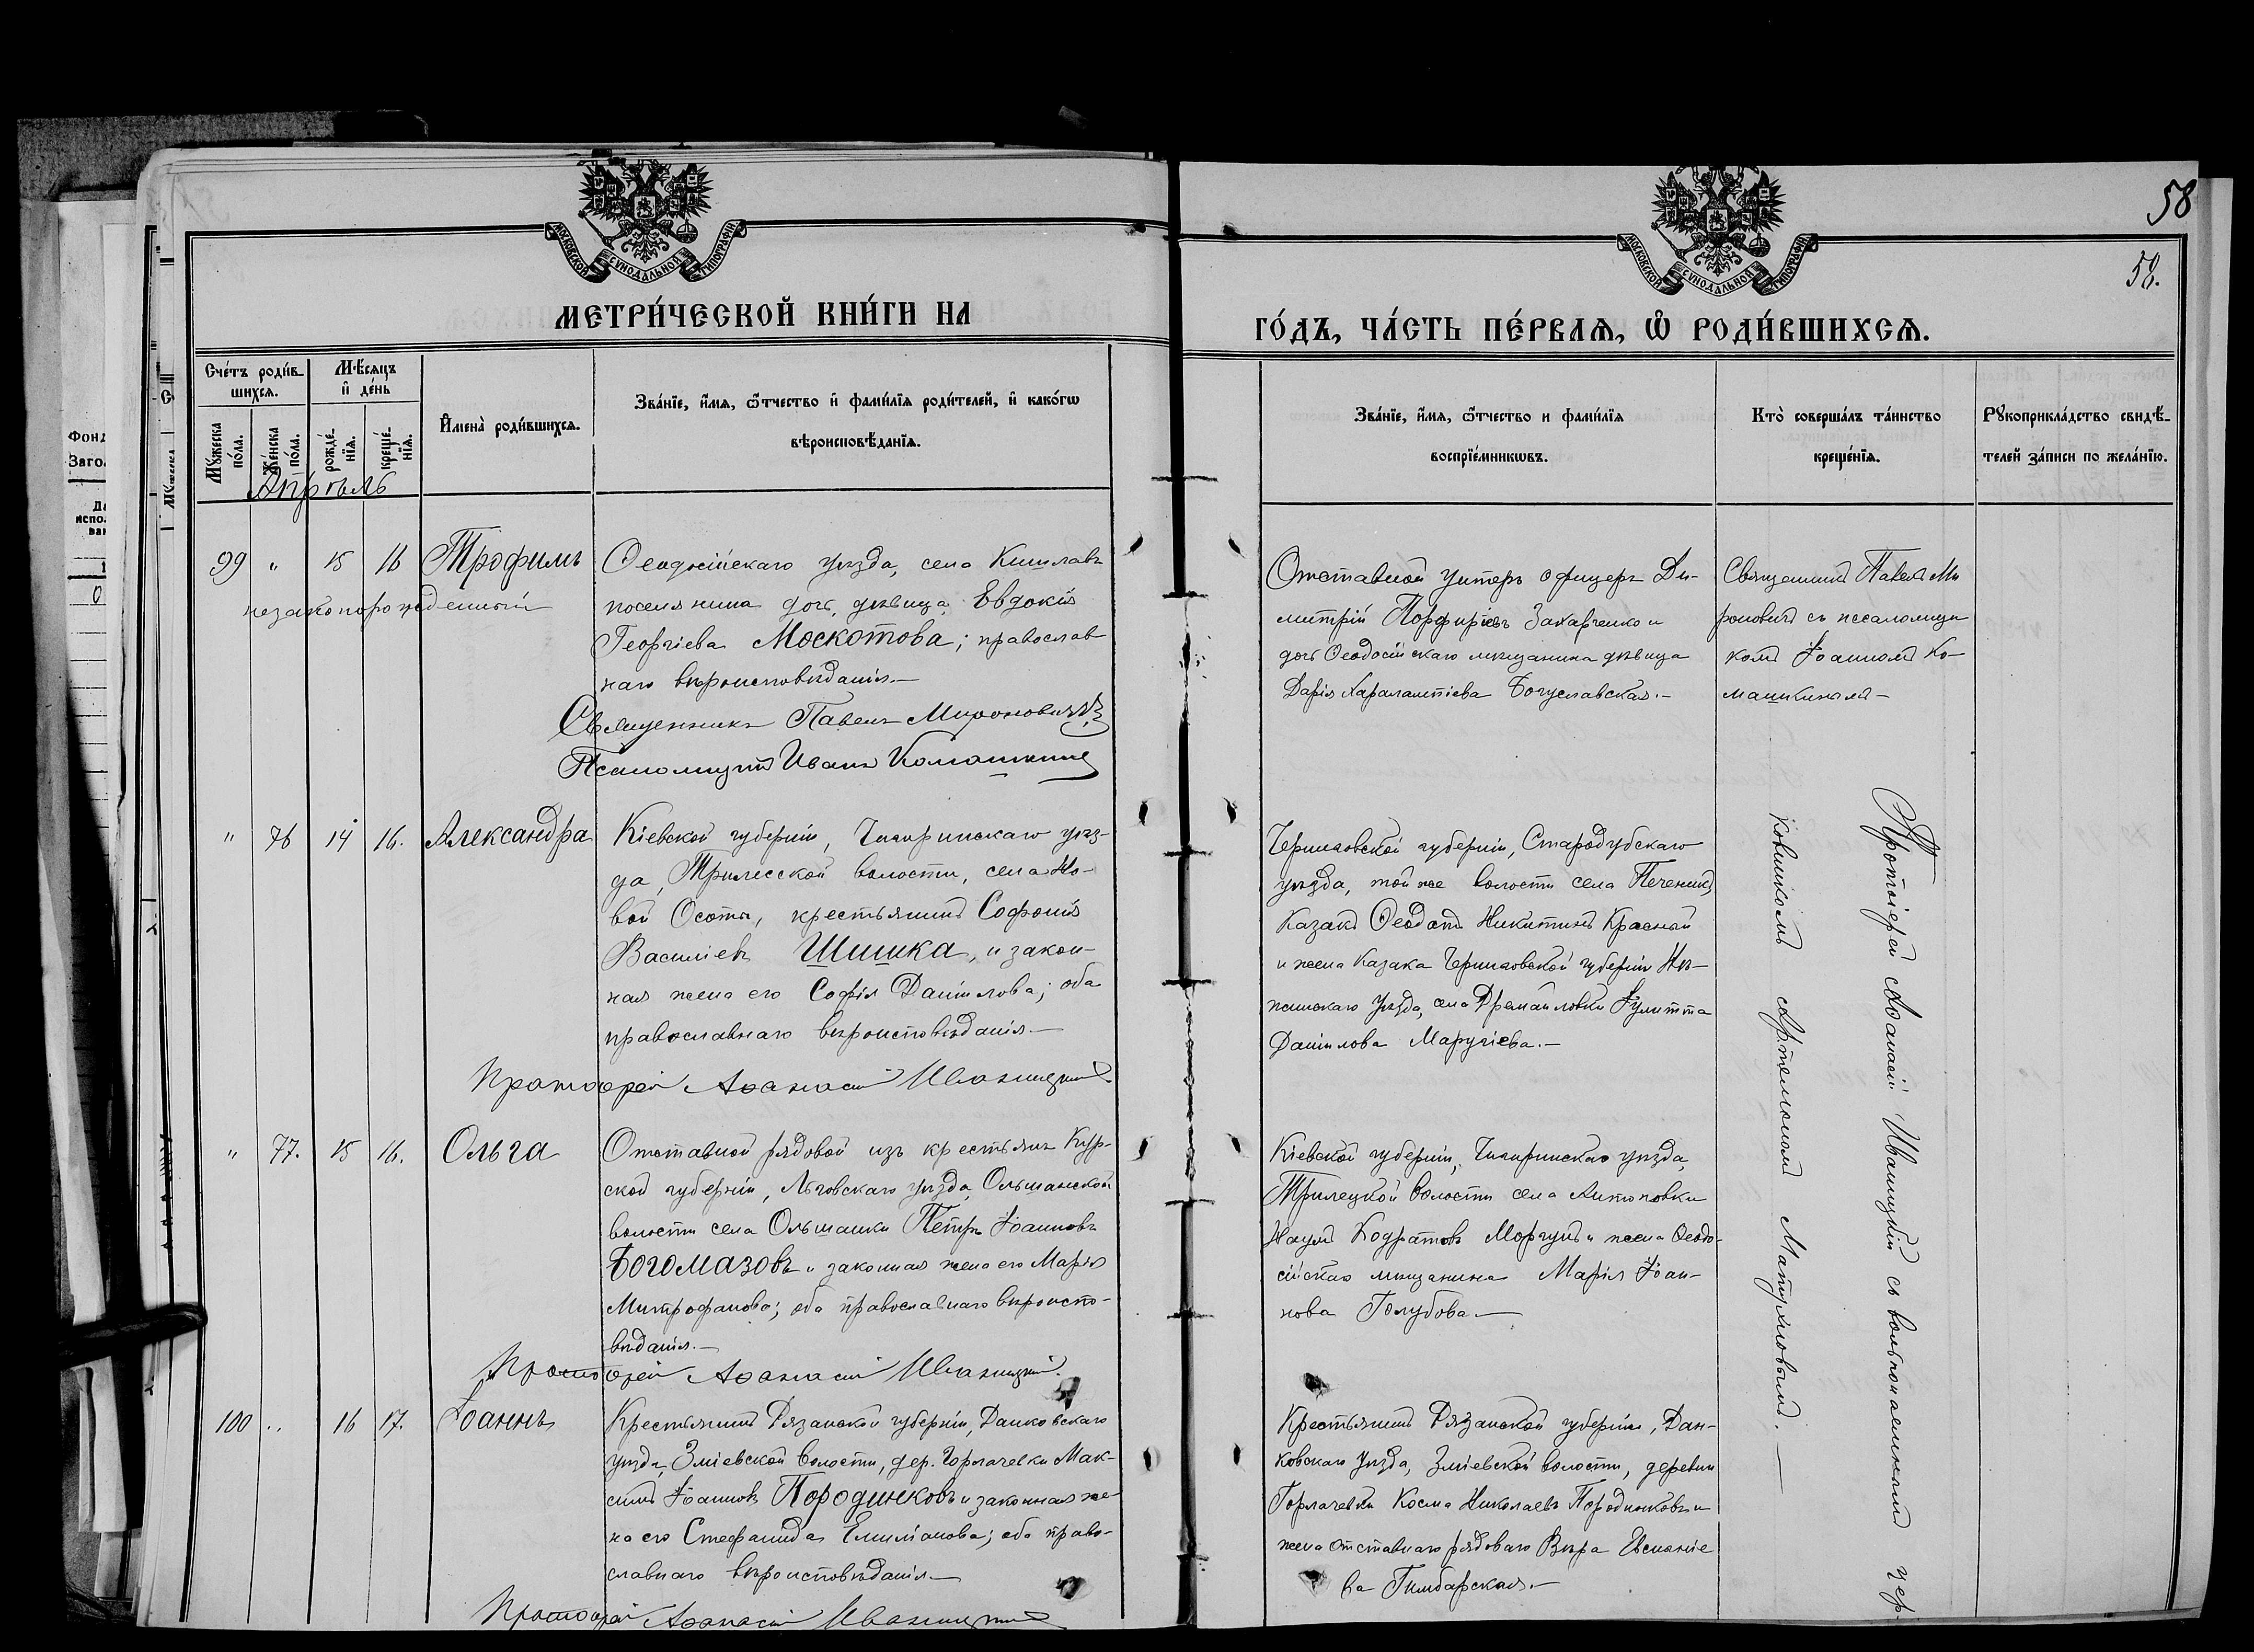 58
58.
МОСКОВСКОЙ СУНОДАЛЬНОЙ ТИПОГРАФІИ.
МОСКОВСКОЙ СУНОДАЛЬНОЙ ТИПОГРАФІИ.
МЕТРИ́ЧЕСКОЙ КНИ́ГИ НА
ГО́ДЪ, ЧА́СТЬ ПЕ́РВАѦ, Ѡ РОДИ́ВШИХСѦ.
Сче́тъ роди́в-
шихсѧ.
Мꙋ́жеска по́ла.
Же́нска по́ла.
Мѣ́сѧцъ
и҆ де́нь
рожде́-
нїѧ.
креще́-
нїѧ.
И҆мена̀ роди́вшихсѧ.
Зва́нїе, и҆́мѧ, ѻ҆́тчество и҆ фами́лїѧ роди́телей, и҆ како́гѡ
вѣроисповѣ́данїѧ.
Зва́нїе, и҆́мѧ, ѻ҆́тчество и фами́лїѧ
воспрїе́мникѡвъ.
Кто̀ соверша́лъ та́инство
креще́нїѧ.
Рꙋкоприкла́дство свидѣ́-
телей за́писи по жела́нїю.
Апрѣль
99 " 15 16 Трофимъ
незаконорожденный
Ѳеодосійскаго уѣзда, села Кишлавъ
поселянина дочь, дѣвица Евдокія
Георгіева Москотова; православ
наго вѣроисповѣданія.—
Священникъ Павелъ Мироновичъ
Псаломщикъ Иванъ Комашкинъ
Отставной унтеръ офицеръ Ди-
митрій Порфиріевъ Захарченко и
дочь Ѳеодосійскаго мѣщанина дѣвица
Дарія Харалампіева Богуславская.—
Священникъ Павелъ Ми
роновичъ съ псаломщи
комъ Іоанномъ Ко-
машкинымъ—
" 76 14 16. Александра
Кіевской губерніи, Чигиринскаго уѣз-
да, Трилесской волости, села Но-
вой Осоты, крестьянинъ Софоній
Василіевъ Шишка, и закон-
ная жена его Софія Даніилова; оба
православнаго вѣроисповѣданія.—
Протоіерей Аѳанасій Иваницкій
Черниговской губерніи, Стародубскаго
уѣзда, той же волости села Печеникъ
Казакъ Ѳеодотъ Никитинъ Красный
и жена Казака Черниговской губерніи Нѣ-
жинскаго уѣзда, села Дремайловки Іулитта
Даніилова Маругіева.—
Протоіерей Аѳанасій Иваницкій съ вольнонаемнымъ чер-
ковникомъ Артемономъ
" 77. 15 16. Ольга
Отставной рядовой изъ крестьянъ Кур-
ской губерніи, Льговскаго уѣзда, Ольшанской
волости села Ольшанки Петръ Іоанновъ
Богомазовъ и законная жена его Марія
Митрофанова; оба православнаго вѣроиспо-
вѣданія.—
Протоіерей Аѳанасій Иваницкій.
Кіевской губерніи, Чигиринскаго уѣзда,
Трилецкой волости села Антоновки
Наумъ Кодратовъ Моргунъ и жена Ѳеодо-
сійскаго мѣщанина Марія Іоан-
нова Голубова—
100 " 16 17. Іоаннъ
Крестьянинъ Рязанской губерніи, Данковскаго
уѣзда, Зміевской волости, дер. Горлачевки Мак-
симъ Іоанновъ Породинковъ и законная же-
на его Стефанида Емиліанова; оба право-
славнаго вѣроисповѣданія.—
Протоіерей Аѳанасій Иваницкій
Крестьянинъ Рязанской губерніи, Дан-
ковскаго уѣзда, Зміевской волости, деревни
Горлачевки Косма Николаевъ Породинковъ и
жена отставнаго рядоваго Вѣра
ва Гимбарская.—